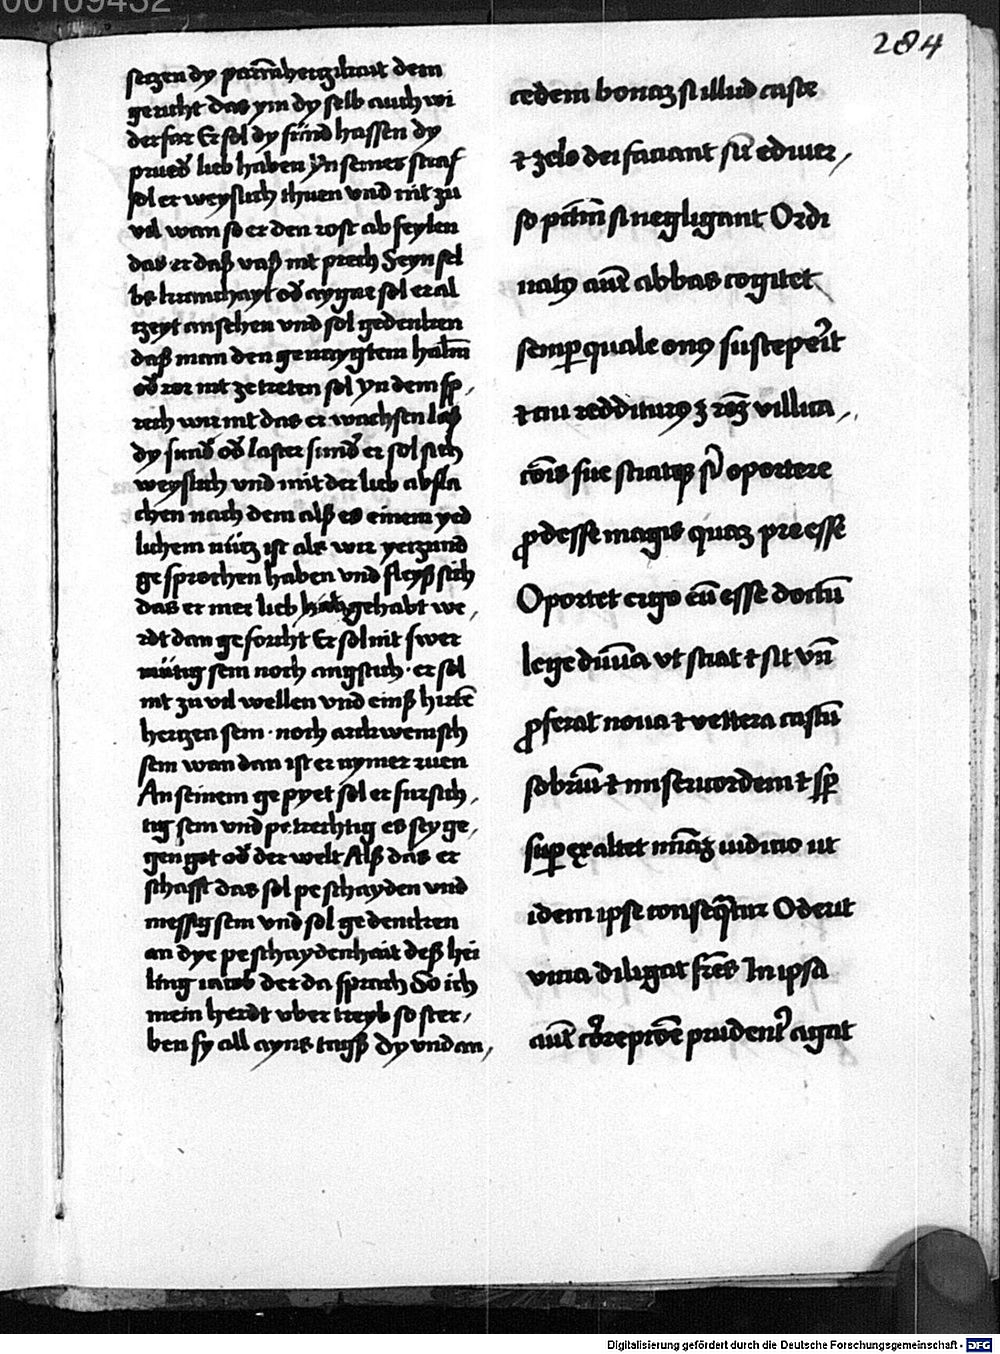 00109432
284
setzen dy parmhertzikait dem
gericht das ym dy selb auch wi
derfar Er sol dy sünd hassen dy
prueđ lieb haben Yn seiner straf
sol er weyslich thuen vnd nit zu
vil wan so er den rost ab feylen
das er daß vaß nit prech Seyn sel
bs kranchayt ođ aygne sol er al
tzeyt ansehen vnd sol gedencken
daß man den genaygtem halm̄
ođ ror nit ze treten sol Yn dem sp,
rech wir nit das er wachsen laß
dy sund ođ laster sunđ er sol sich
weyslich vnd mit der lieb absla
chen nach dem alß es einem yed
lichem nütz ist als wir yetzund
gesprochen haben vnd fleyß sich
das er mer lieb gehabt we,
rdt dan geforcht Er sol nit swer
mütig sein noch angstich · er sol
nit zu vil wellen vnd einß hirtē
hertzen sein · noch arckwenisch
sein wan dan ist er nymer ruen
An seinem gepyet sol er fursich,
tig sein vnd petrechtig es sey ge,
gen got ođ der welt Alß das er
schafft das sol peschayden vnd
messig sein vnd sol gedencken
an dye peschaydenhait deß hei
ling iacob der da sprach So ich
mein herdt vber treyb so ster,
ben sy all ayns tagß Dy vnd an,
cedem bonaꝫ si illud caste
⁊ zelo dei faciant sīı e diuer,
so pctm̄ si negligant Ordi
natꝯ aūt abbas cogitet
semꝑ quale onꝯ suscepe͛it
⁊ cui redditurꝯ ꝫ rōꝫ villica,
cōis sue sciatqꝫ sˡ oportere
ꝓdesse magis quaꝫ preesse
Oportet ergo eū esse doctū
lege diuīa vt sciat ⁊ sit vn̄
ꝓferat noua ⁊ vettera castū
sobriū ⁊ misericordem ⁊ sꝑ
suꝑ exaltet mīaꝫ iudicio ut
idem ipse conseq̄tur Oderit
vicia diligat fr̄es In ipsa
aūt cōrepcōe prudent͛ agat
Digitalisierung gefördert durch die Deutsche Forschungsgemeinschaft - DFG